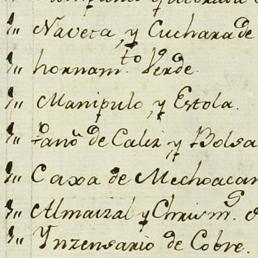 1,, Naveta, y Cuchara de
1,, hornam.to Verde.
1,, Manipulo, y Estola.
1,, Pano de Caliz y Bolsa
1,, Caxa de Mechoacan
1,, Almaizal y Chrism.s
1,, Ynzensario de Cobre.